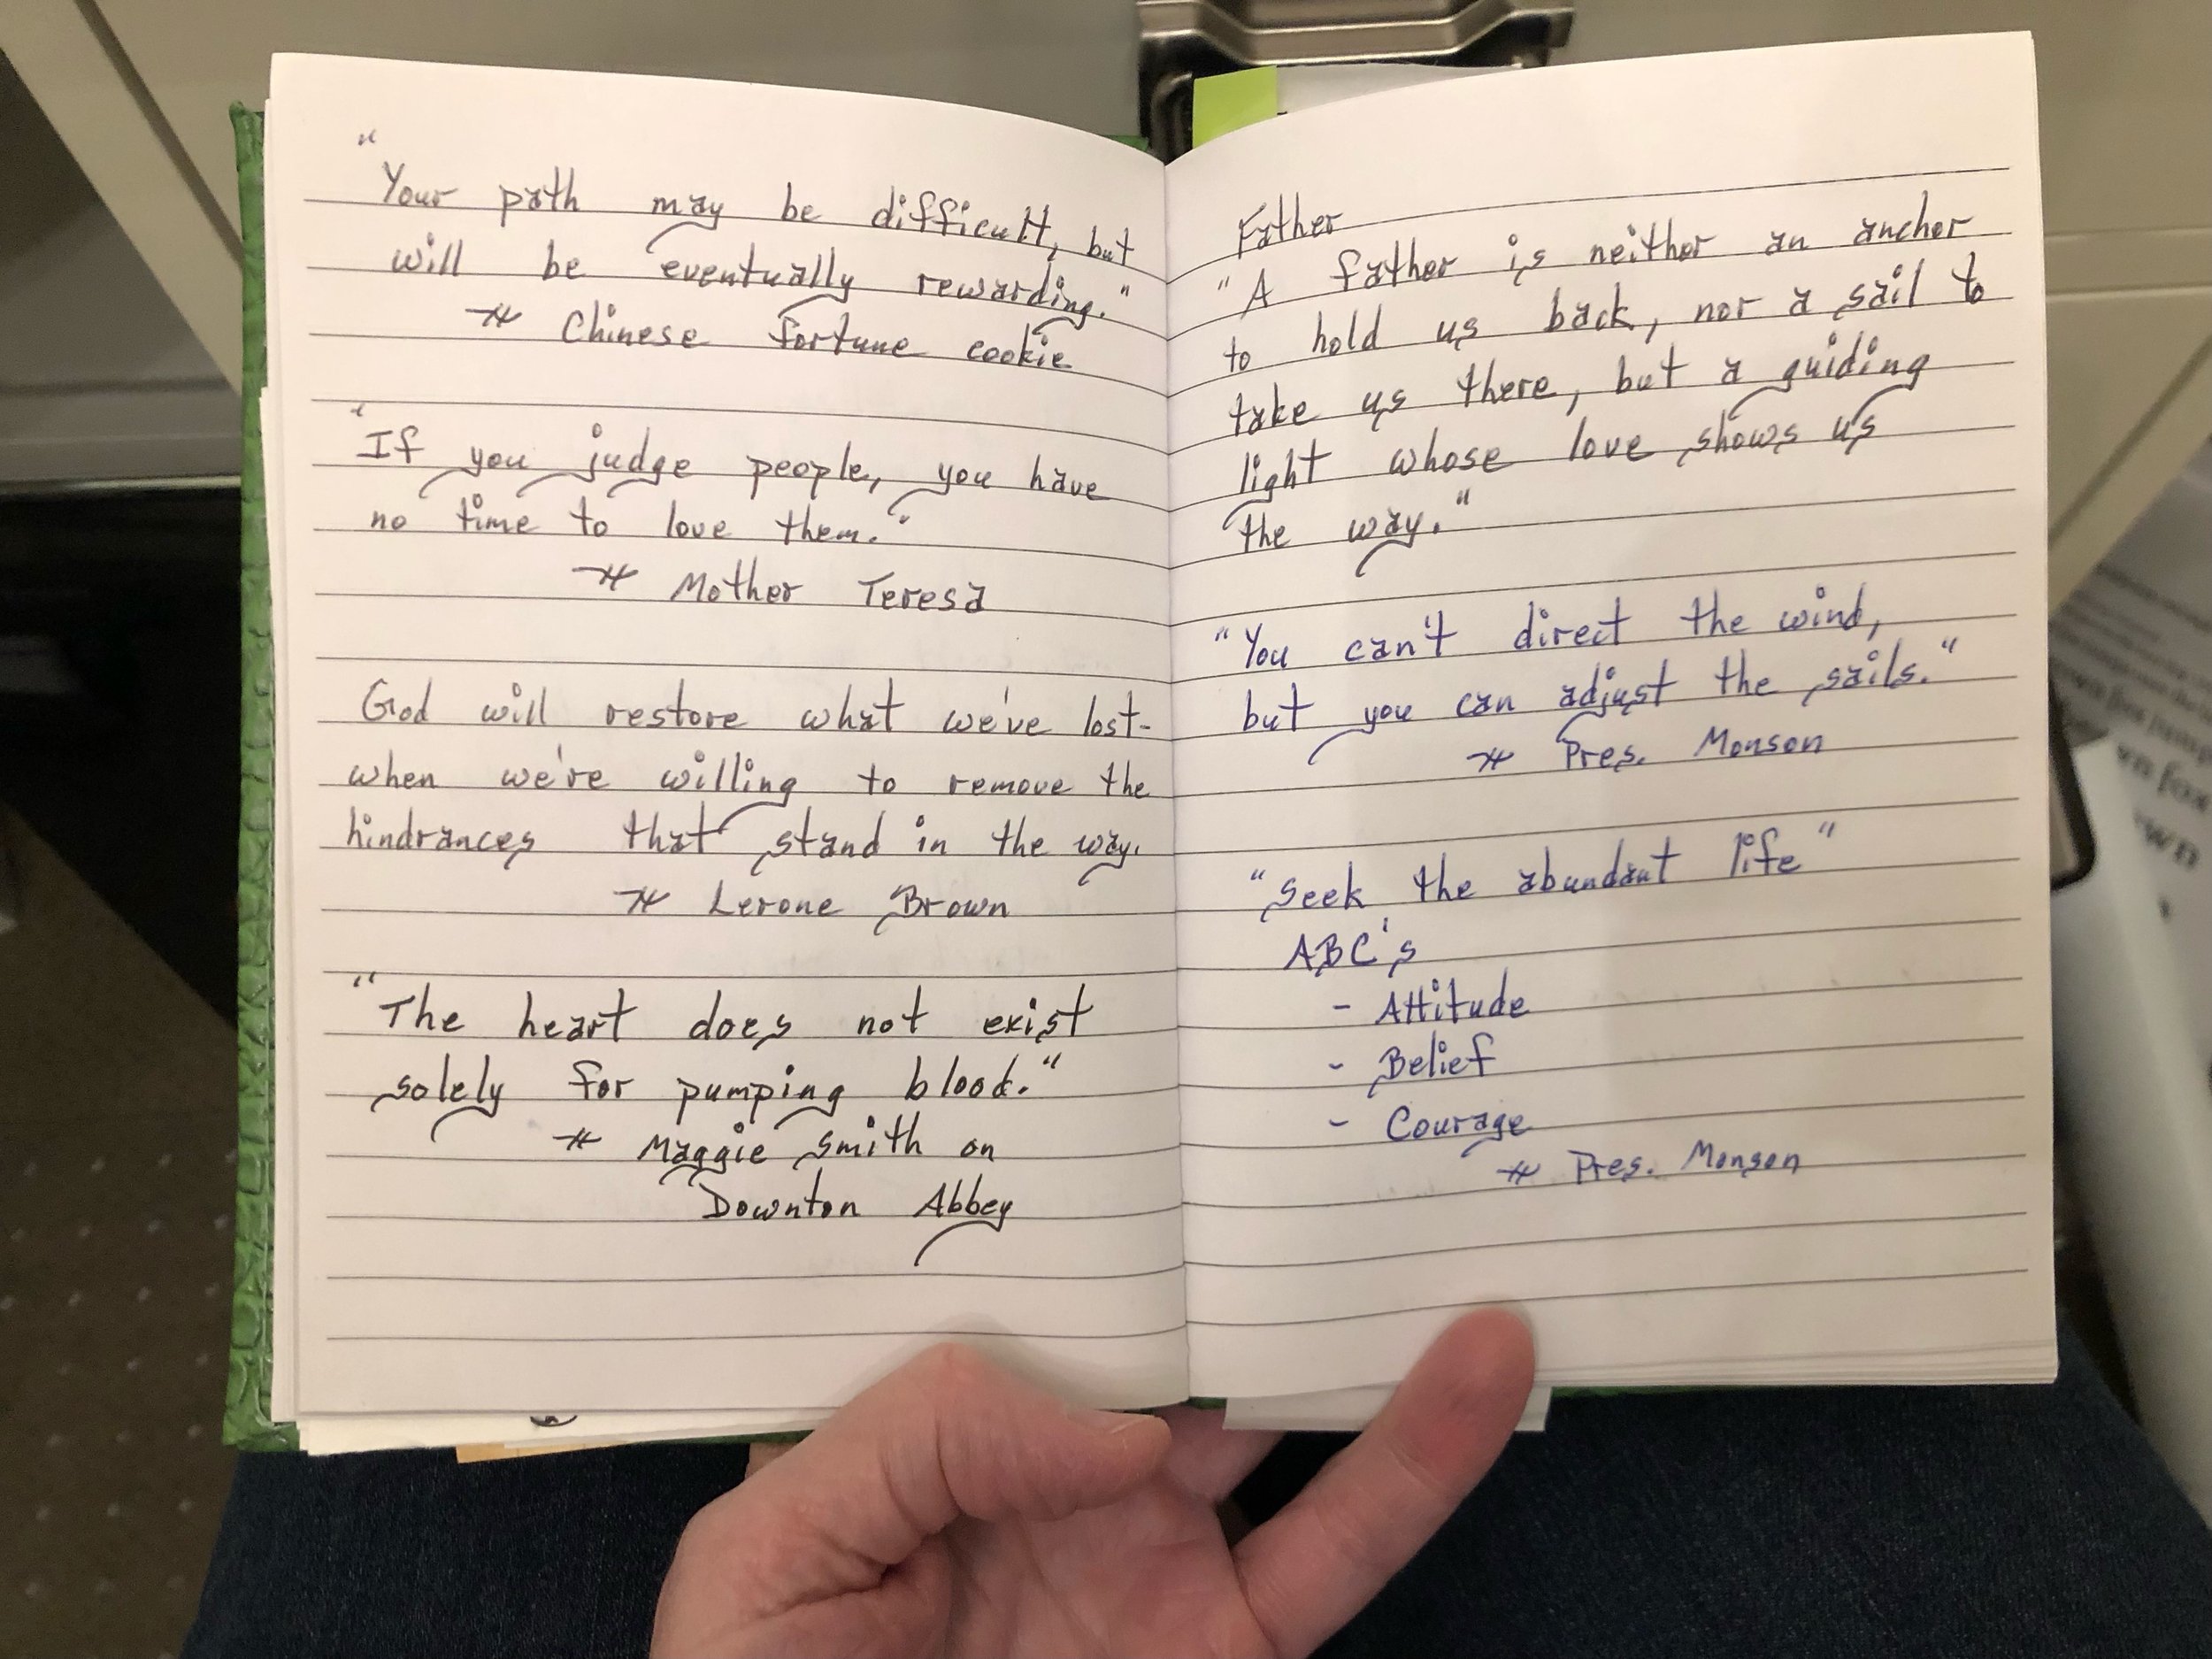 "Your path may be difficult, but
will be eventually rewarding."
Chinese fortune cookie
"If you judge people, you have
no time to love them."
Mother Teresa
God will restore what we've lost-
when we're willing to remove the
hindrances that stand in the way.
Lerone Brown
"The heart does not exist
solely for pumping blood."
Maggie Smith on
Downton Abbey
Father
"A father is neither an anchor
to hold us back, nor a sail to
take us there, but a guiding
light whose love shows us
the way."
"You can't direct the wind,
but you can adjust the sails."
Pres. Monson
"Seek the abundant life"
ABC's
- Attitude
- Belief
- Courage
Pres. Monson